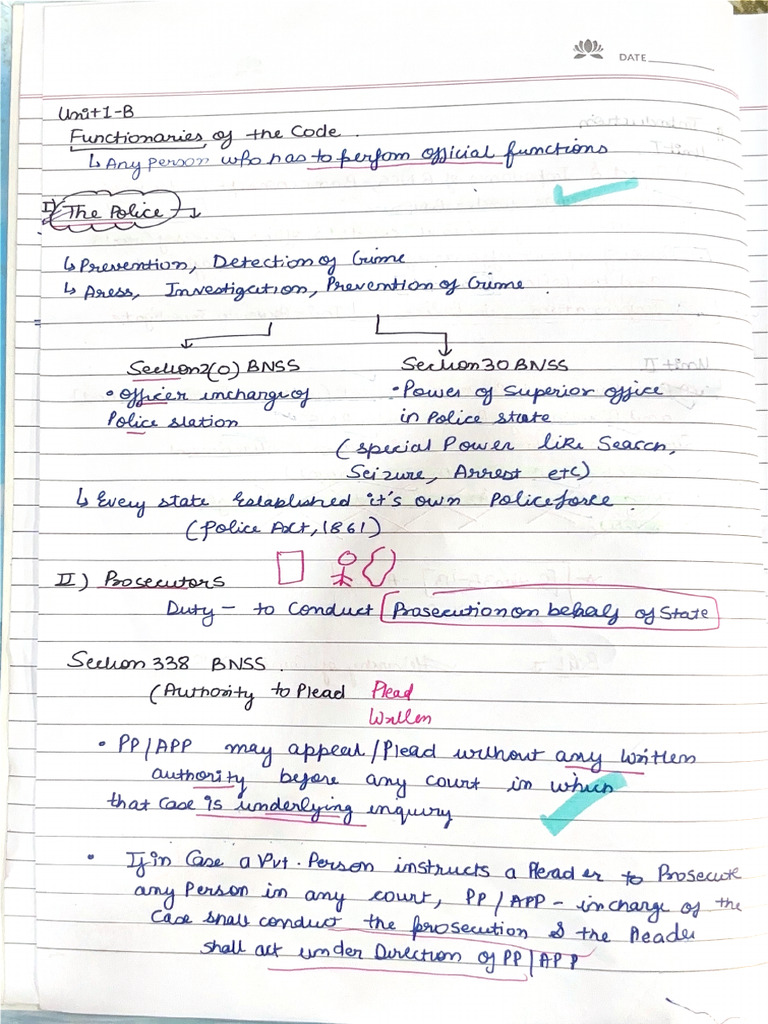 DATE
Unit 1-B
Functionaries of the Code.
↳ Any person who has to perfom official functions
I) The Police ↓
↳ Prevention, Detection of Crime
↳ Aress, Investigation, Prevention of Crime.
Section 2(o) BNSS
• Officer incharge of
Police station
Section 30 BNSS
• Power of Superior office
in Police state
(special Power like Search,
Seizure, Arrest etc)
↳ Every state Established it's own Policeforce.
(Police Act, 1861)
II) Prosecutors
Duty - to Conduct Prosecution on behalf of State
Section 338 BNSS.
(Authority to Plead Plead
Written
• PP/APP may appeal/Plead without any written
authority before any court in which
that case is underlying inquiry
• If in Case a Pvt. Person instructs a Pleader to Prosecute
any Person in any court, PP/APP - incharge of the
Case shall conduct the prosecution & the Pleader
shall act under Direction of PP/APP